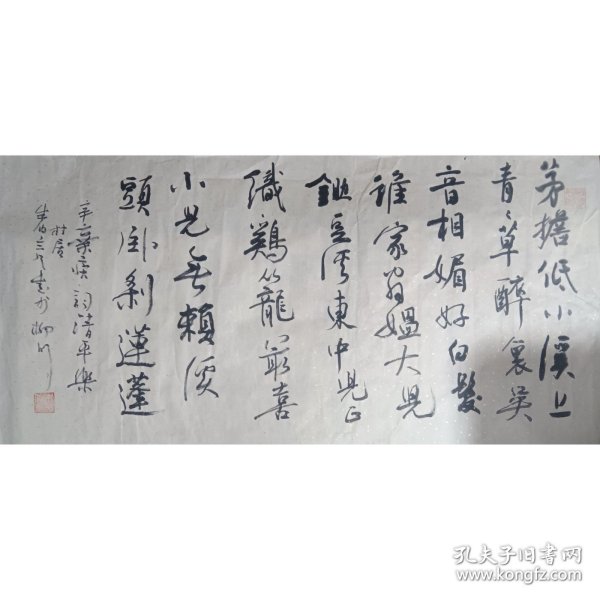 茅擔低小溪上
青々草醉裏吴
音相媚好白髮
誰家翁媼大児
鋤豆溪東中児正
織鷄籠最喜
小児無賴溪
頭卧剝蓮蓬
辛棄疾詞清平樂
村居
孔夫子旧书网
www.kongfz.com